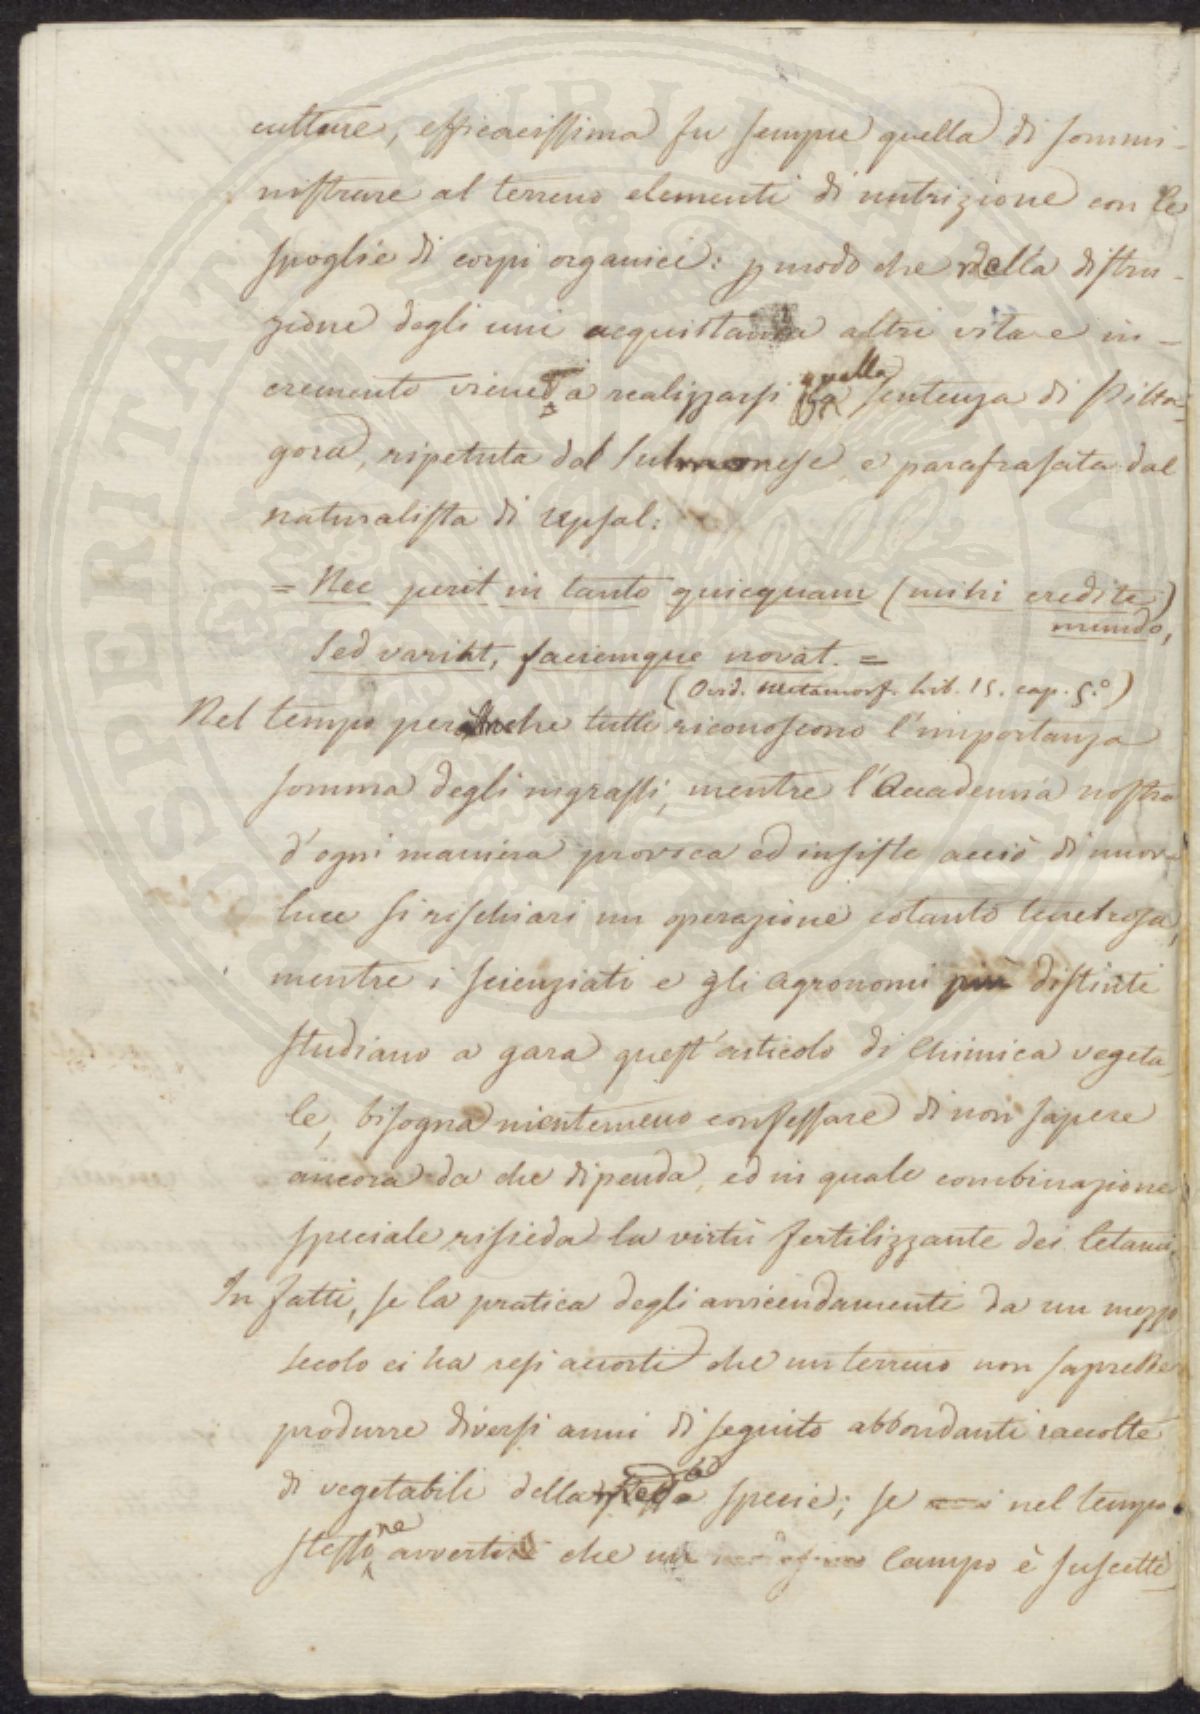 culture, efficacissima fu sempre quella di sommi-
nistrare al terreno elementi di nutrizione con le
spoglie di corpi organici: p modo che della distru-
zione degli uni acquistando altri vita e in-
cremento viene a realizzarsi quella sentenza di Pitta-
gora, ripetuta dal Sulmonese, e parafrasata dal
naturalista di Upsal:
= Nec perit in tanto quicquam (mihi credite)
mundo,
Sed variat, faciemque novat. =
(Ovid. Metamorf. Lib. 15. cap. 5.°)
Nel tempo però che tutti riconoscono l'importanza
somma degli ingrassi, mentre l'Accademia nostra
d'ogni maniera provoca ed insiste acciò di nuova
luce si rischiari un operazione cotanto tenebrosa,
mentre i scienziati e gli agronomi più distinti
studiano a gara quest'articolo di Chimica vegeta-
le, bisogna nientemeno confessare di non sapere
ancora da che dipenda, ed in quale combinazione
speciale risieda la virtù fertilizzante dei letami.
In fatti, se la pratica degli avvicendamenti da un mezzo
secolo ci ha resi accorti che un terreno non saprebbe
produrre diversi anni di seguito abbondanti raccolte
di vegetabili della specie; se nel tempo
stesso ne avvertì che un campo è suscetti-